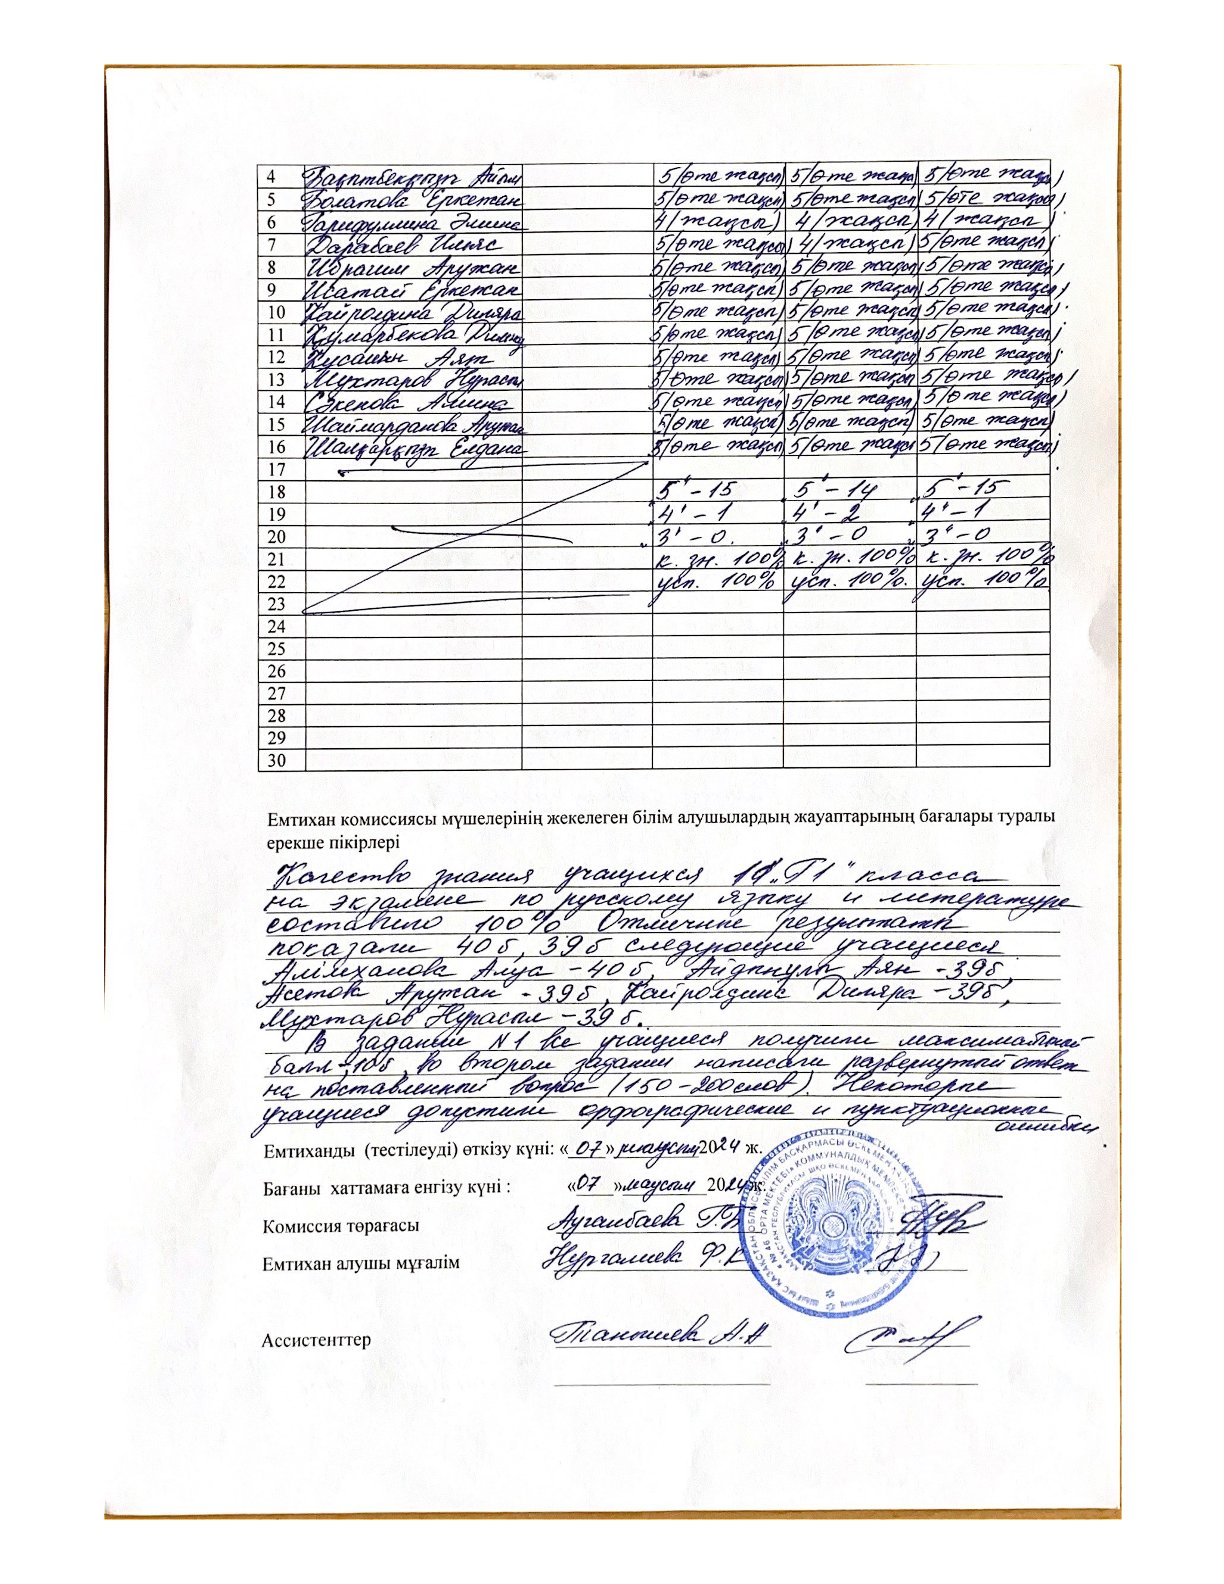 4 Бақытбекқызы Айым 5/өте жақсы) 5/өте жақсы 5/өте жақсы)
5 Болатова Еркежан 5/өте жақсы) 5/өте жақсы) 5/өте жақсы)
6 Гарифуллина Элина 4/жақсы) 4/жақсы) 4/жақсы)
7 Дарабаев Ильяс 5/өте жақсы) 4/жақсы) 5/өте жақсы)
8 Ибрагим Аружан 5/өте жақсы) 5/өте жақсы) 5/өте жақсы)
9 Исатай Еркежан 5/өте жақсы) 5/өте жақсы) 5/өте жақсы)
10 Кайролдина Диляра 5/өте жақсы) 5/өте жақсы) 5/өте жақсы)
11 Құмарбекова 5/өте жақсы) 5/өте жақсы 5/өте жақсы)
12 Кусаин Аят 5/өте жақсы) 5/өте жақсы) 5/өте жақсы)
13 Мухтаров Нурасыл 5/өте жақсы) 5/өте жақсы 5/өте жақсы)
14 Сәкенова Амина 5/өте жақсы) 5/өте жақсы) 5/өте жақсы)
15 Шаймарданова Аружан 5/өте жақсы) 5/өте жақсы) 5/өте жақсы)
16 Шалқарқызы Елдана 5/өте жақсы) 5/өте жақсы 5/өте жақсы)
17
18 „5“ – 15 „5“ – 14 „5“ – 15
19 „4“ – 1 „4“ – 2 „4“ – 1
20 „3“ – 0. „3“ – 0 „3“ – 0
21 к. зн. 100% к. зн. 100% к. зн. 100%
22 усп. 100% усп. 100%. усп. 100%
23
24
25
26
27
28
29
30
Емтихан комиссиясы мүшелерінің жекелеген білім алушылардың жауаптарының бағалары туралы
ерекше пікірлері
Качество знания учащихся 11 „Г1“ класса
на экзамене по русскому языку и литературе
составило 100% Отличные результаты
показали 40б, 39б следующие учащиеся
Алімханова Алуа – 40б, Айдынұлы Аян – 39б,
Асетова Аружан – 39б, Кайролдина Диляра – 39б,
Мухтаров Нурасыл – 39б.
В задании №1 все учащиеся получили максимальный
балл – 10б, во втором задании написали развернутый ответ
на поставленный вопрос (150–200слов). Некоторые
учащиеся допустили орфографические и пунктуационные
ошибки.
Емтиханды (тестілеуді) өткізу күні: «07» маусым 2024 ж.
Бағаны хаттамаға енгізу күні : «07» маусым 2024 ж.
Комиссия төрағасы Ауганбаева Г.Б
Емтихан алушы мұғалім Нургалиева Ф.К
Ассистенттер А.А